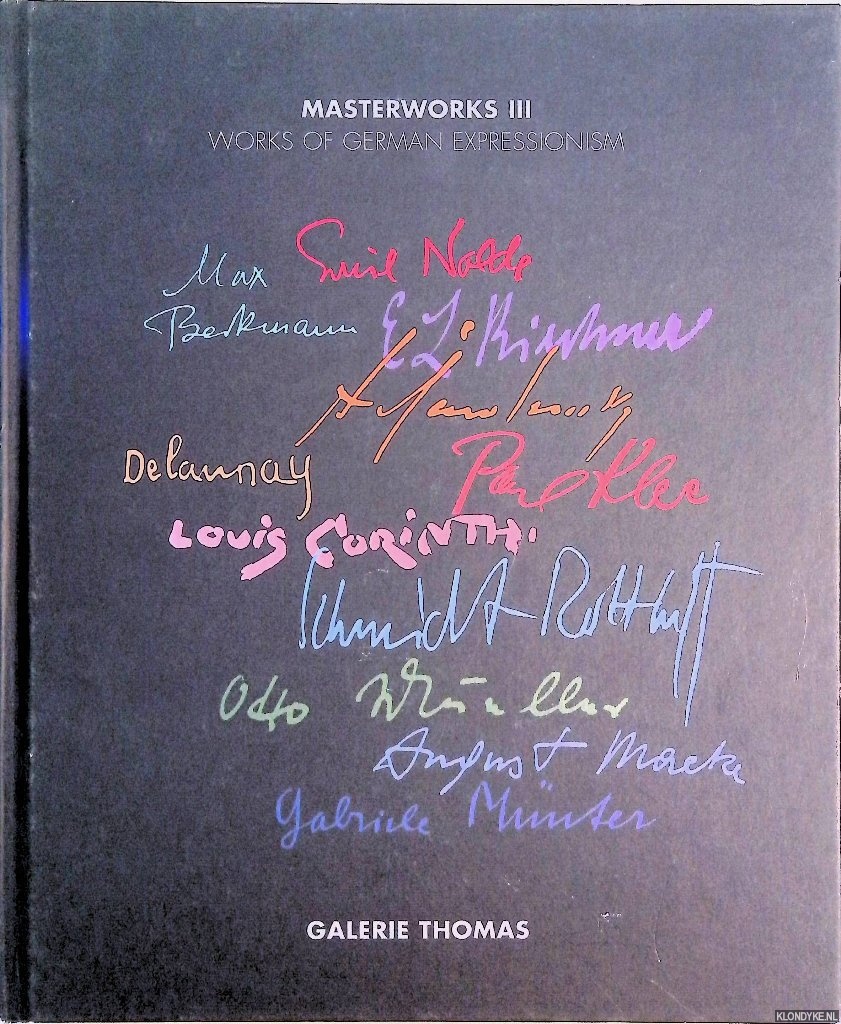 MASTERWORKS III
WORKS OF GERMAN EXPRESSIONISM
Emil Nolde
Max
Beckmann
E L Kirchner
A. Jawlensky
Delaunay
Paul Klee
LOUIS CORINTH.
Schmidt Rottluff
Otto Mueller
August Macke
Gabriele Münter
GALERIE THOMAS
KLONDYKE.NL